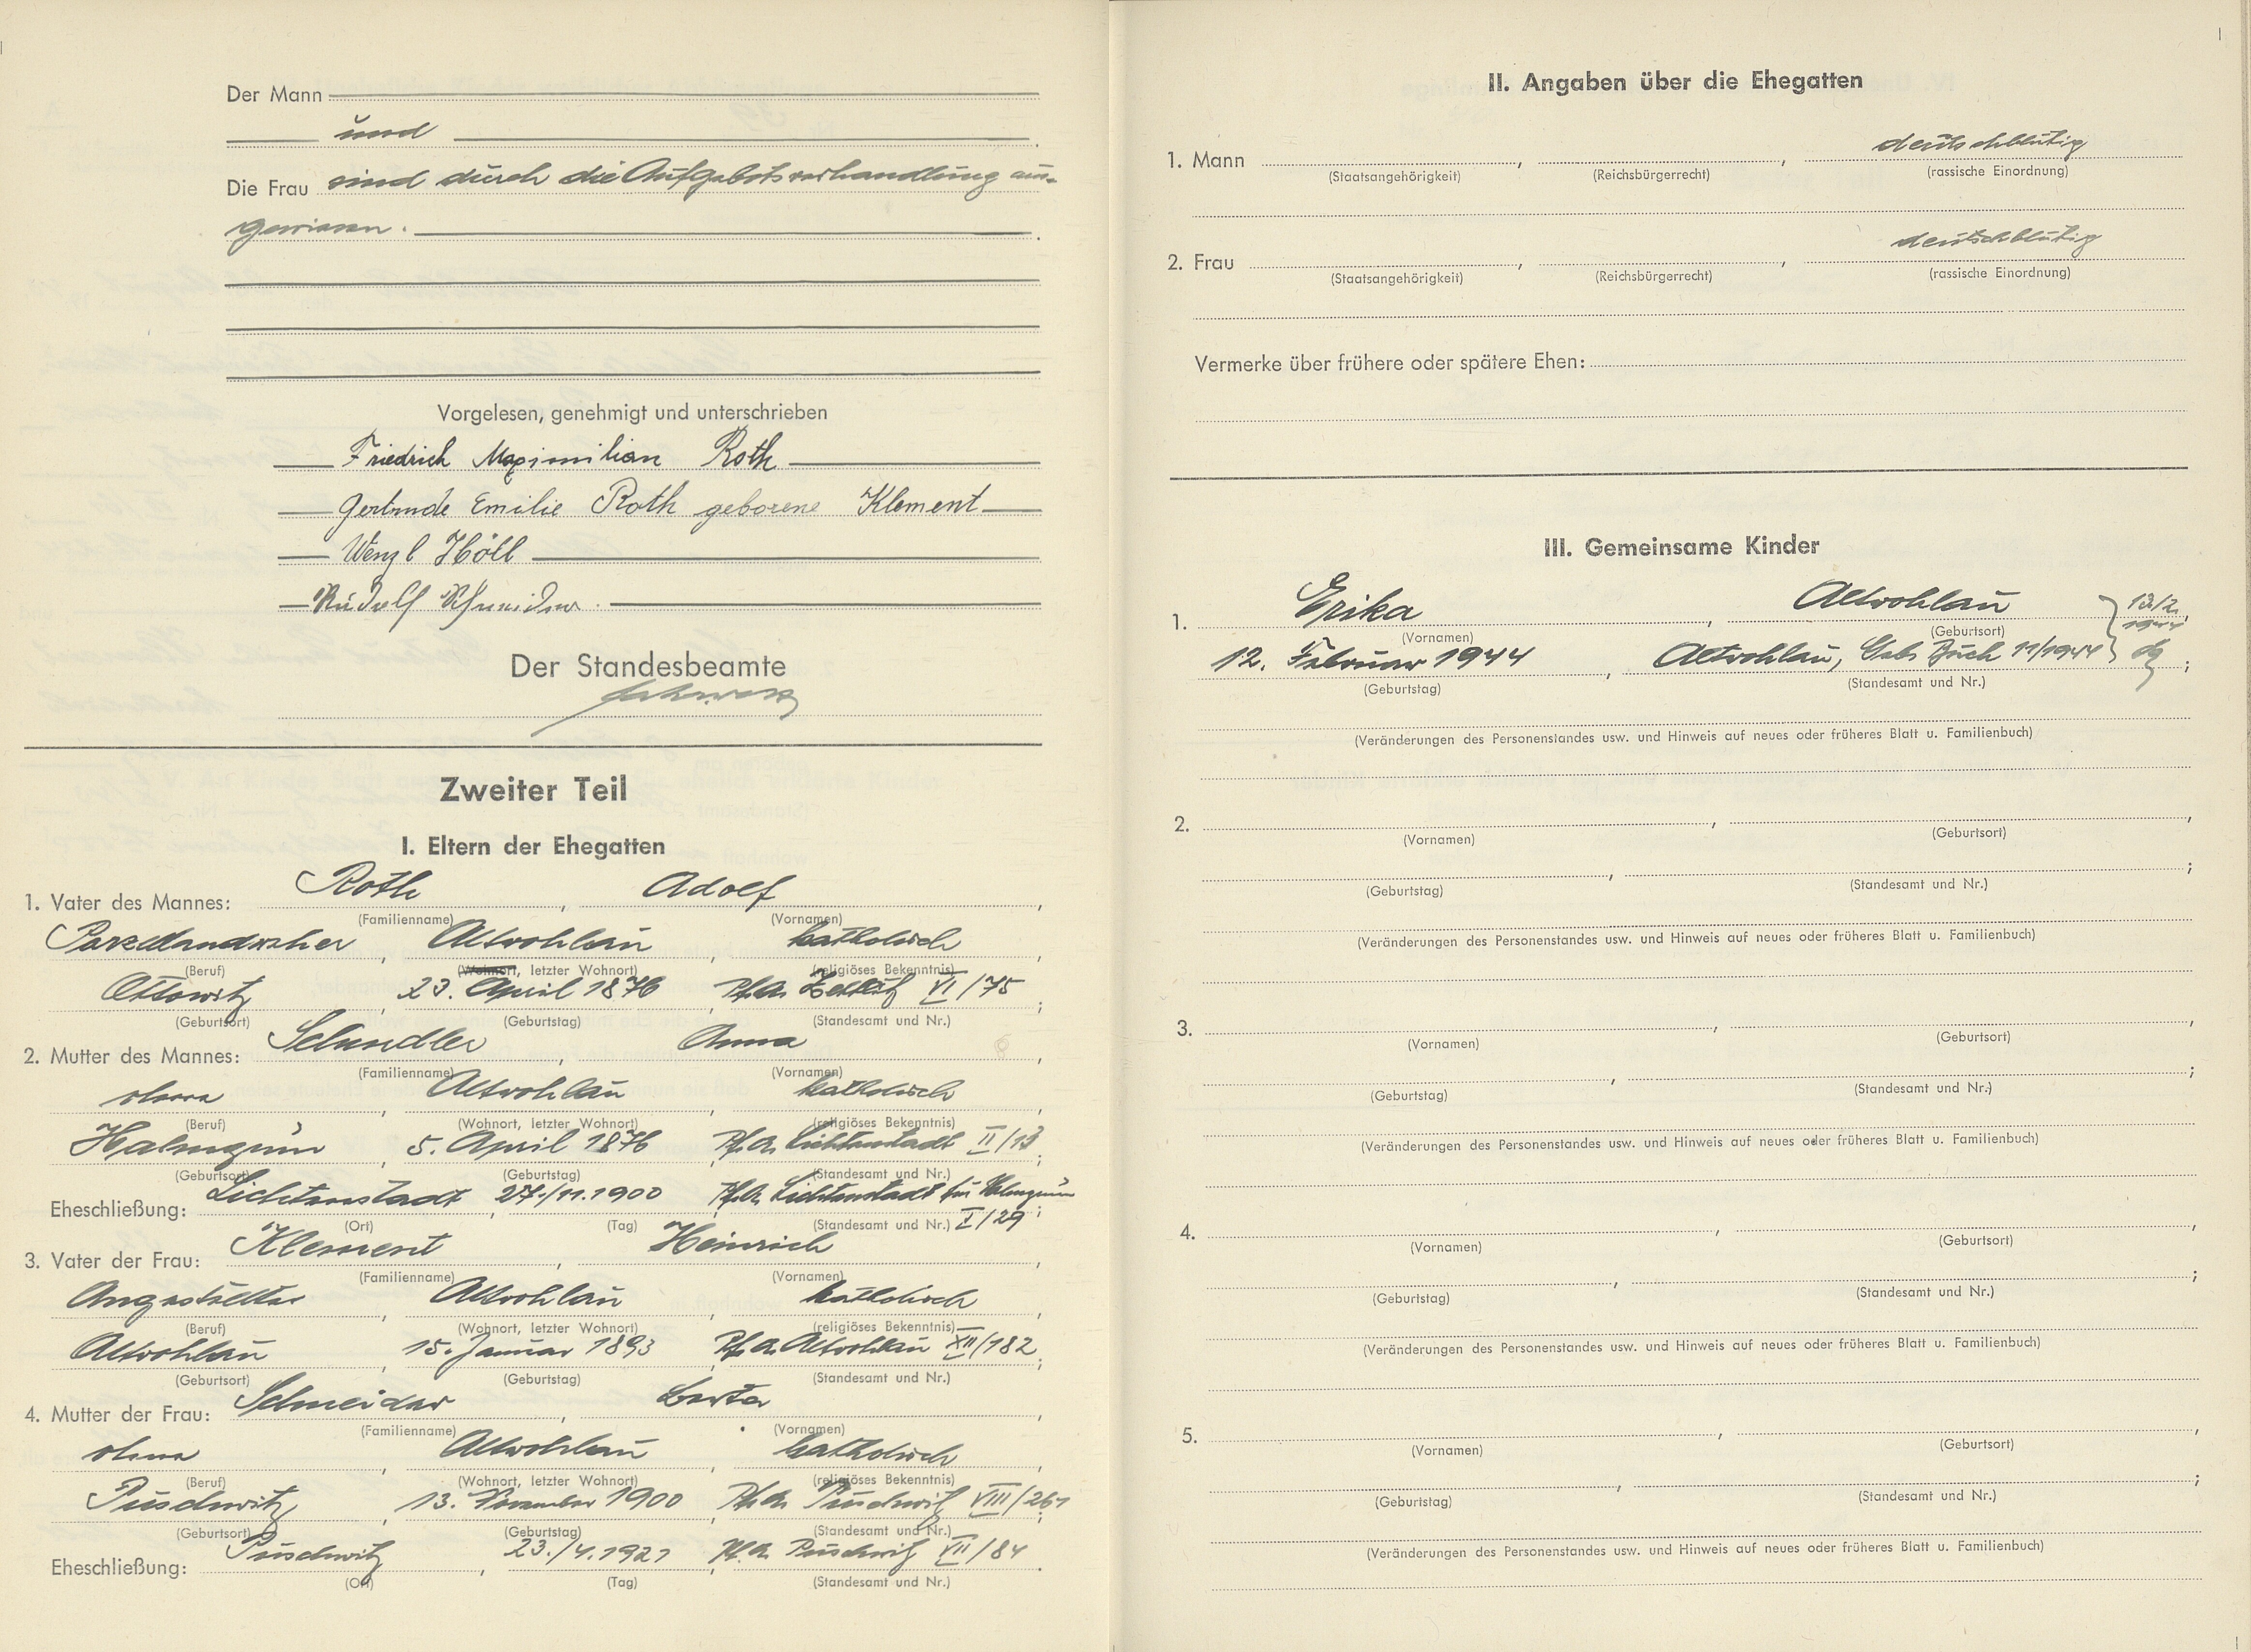 Der Mann
und
Die Frau sind durch die Aufgebotsverhandlung aus-
gewiesen.
Vorgelesen, genehmigt und unterschrieben
Friedrich Maximilian Roth
Gertrude Emilie Roth geborene Klement
Wenzl Höll
Rudolf Schneider.
Der Standesbeamte
Zweiter Teil
I. Eltern der Ehegatten
1. Vater des Mannes: Roth, Adolf,
(Familienname) (Vornamen)
Porzellandreher, Altrohlau, katholisch,
(Beruf) (Wohnort, letzter Wohnort) (religiöses Bekenntnis)
Ottowitz, 23. April 1876, Pf.A. Zettlitz VI/75;
(Geburtsort) (Geburtstag) (Standesamt und Nr.)
2. Mutter des Mannes: Schindler, Anna,
(Familienname) (Vornamen)
ohne, Altrohlau, katholisch,
(Beruf) (Wohnort, letzter Wohnort) (religiöses Bekenntnis)
Halmgrün, 5. April 1876, Pf.A. Lichtenstadt II/13;
(Geburtsort) (Geburtstag) (Standesamt und Nr.)
Eheschließung: Lichtenstadt, 27./11.1900, Pf.A. Lichtenstadt für Halmgrün
(Ort) (Tag) (Standesamt und Nr.) I/29;
3. Vater der Frau: Klement, Heinrich,
(Familienname) (Vornamen)
Angestellter, Altrohlau, katholisch,
(Beruf) (Wohnort, letzter Wohnort) (religiöses Bekenntnis)
Altrohlau, 15. Januar 1893, Pf.A. Altrohlau XII/182;
(Geburtsort) (Geburtstag) (Standesamt und Nr.)
4. Mutter der Frau: Schneider, Berta,
(Familienname) (Vornamen)
ohne, Altrohlau, katholisch,
(Beruf) (Wohnort, letzter Wohnort) (religiöses Bekenntnis)
Puschwitz, 13. November 1900, Pf.A. Puschwitz VIII/261;
(Geburtsort) (Geburtstag) (Standesamt und Nr.)
Eheschließung: Puschwitz, 23./4.1921, Pf.A. Puschwitz VII/84.
(Ort) (Tag) (Standesamt und Nr.)
II. Angaben über die Ehegatten
1. Mann , , deutschblütig
(Staatsangehörigkeit) (Reichsbürgerrecht) (rassische Einordnung)
2. Frau , , deutschblütig
(Staatsangehörigkeit) (Reichsbürgerrecht) (rassische Einordnung)
Vermerke über frühere oder spätere Ehen:
III. Gemeinsame Kinder
1. Erika, Altrohlau 13/2.
(Vornamen) (Geburtsort) 1944
12. Februar 1944, Altrohlau, Geb. Buch 11/1944;
(Geburtstag) (Standesamt und Nr.)
(Veränderungen des Personenstandes usw. und Hinweis auf neues oder früheres Blatt u. Familienbuch)
2. , ,
(Vornamen) (Geburtsort)
, ;
(Geburtstag) (Standesamt und Nr.)
(Veränderungen des Personenstandes usw. und Hinweis auf neues oder früheres Blatt u. Familienbuch)
3. , ,
(Vornamen) (Geburtsort)
, ;
(Geburtstag) (Standesamt und Nr.)
(Veränderungen des Personenstandes usw. und Hinweis auf neues oder früheres Blatt u. Familienbuch)
4. , ,
(Vornamen) (Geburtsort)
, ;
(Geburtstag) (Standesamt und Nr.)
(Veränderungen des Personenstandes usw. und Hinweis auf neues oder früheres Blatt u. Familienbuch)
5. , ,
(Vornamen) (Geburtsort)
, ;
(Geburtstag) (Standesamt und Nr.)
(Veränderungen des Personenstandes usw. und Hinweis auf neues oder früheres Blatt u. Familienbuch)